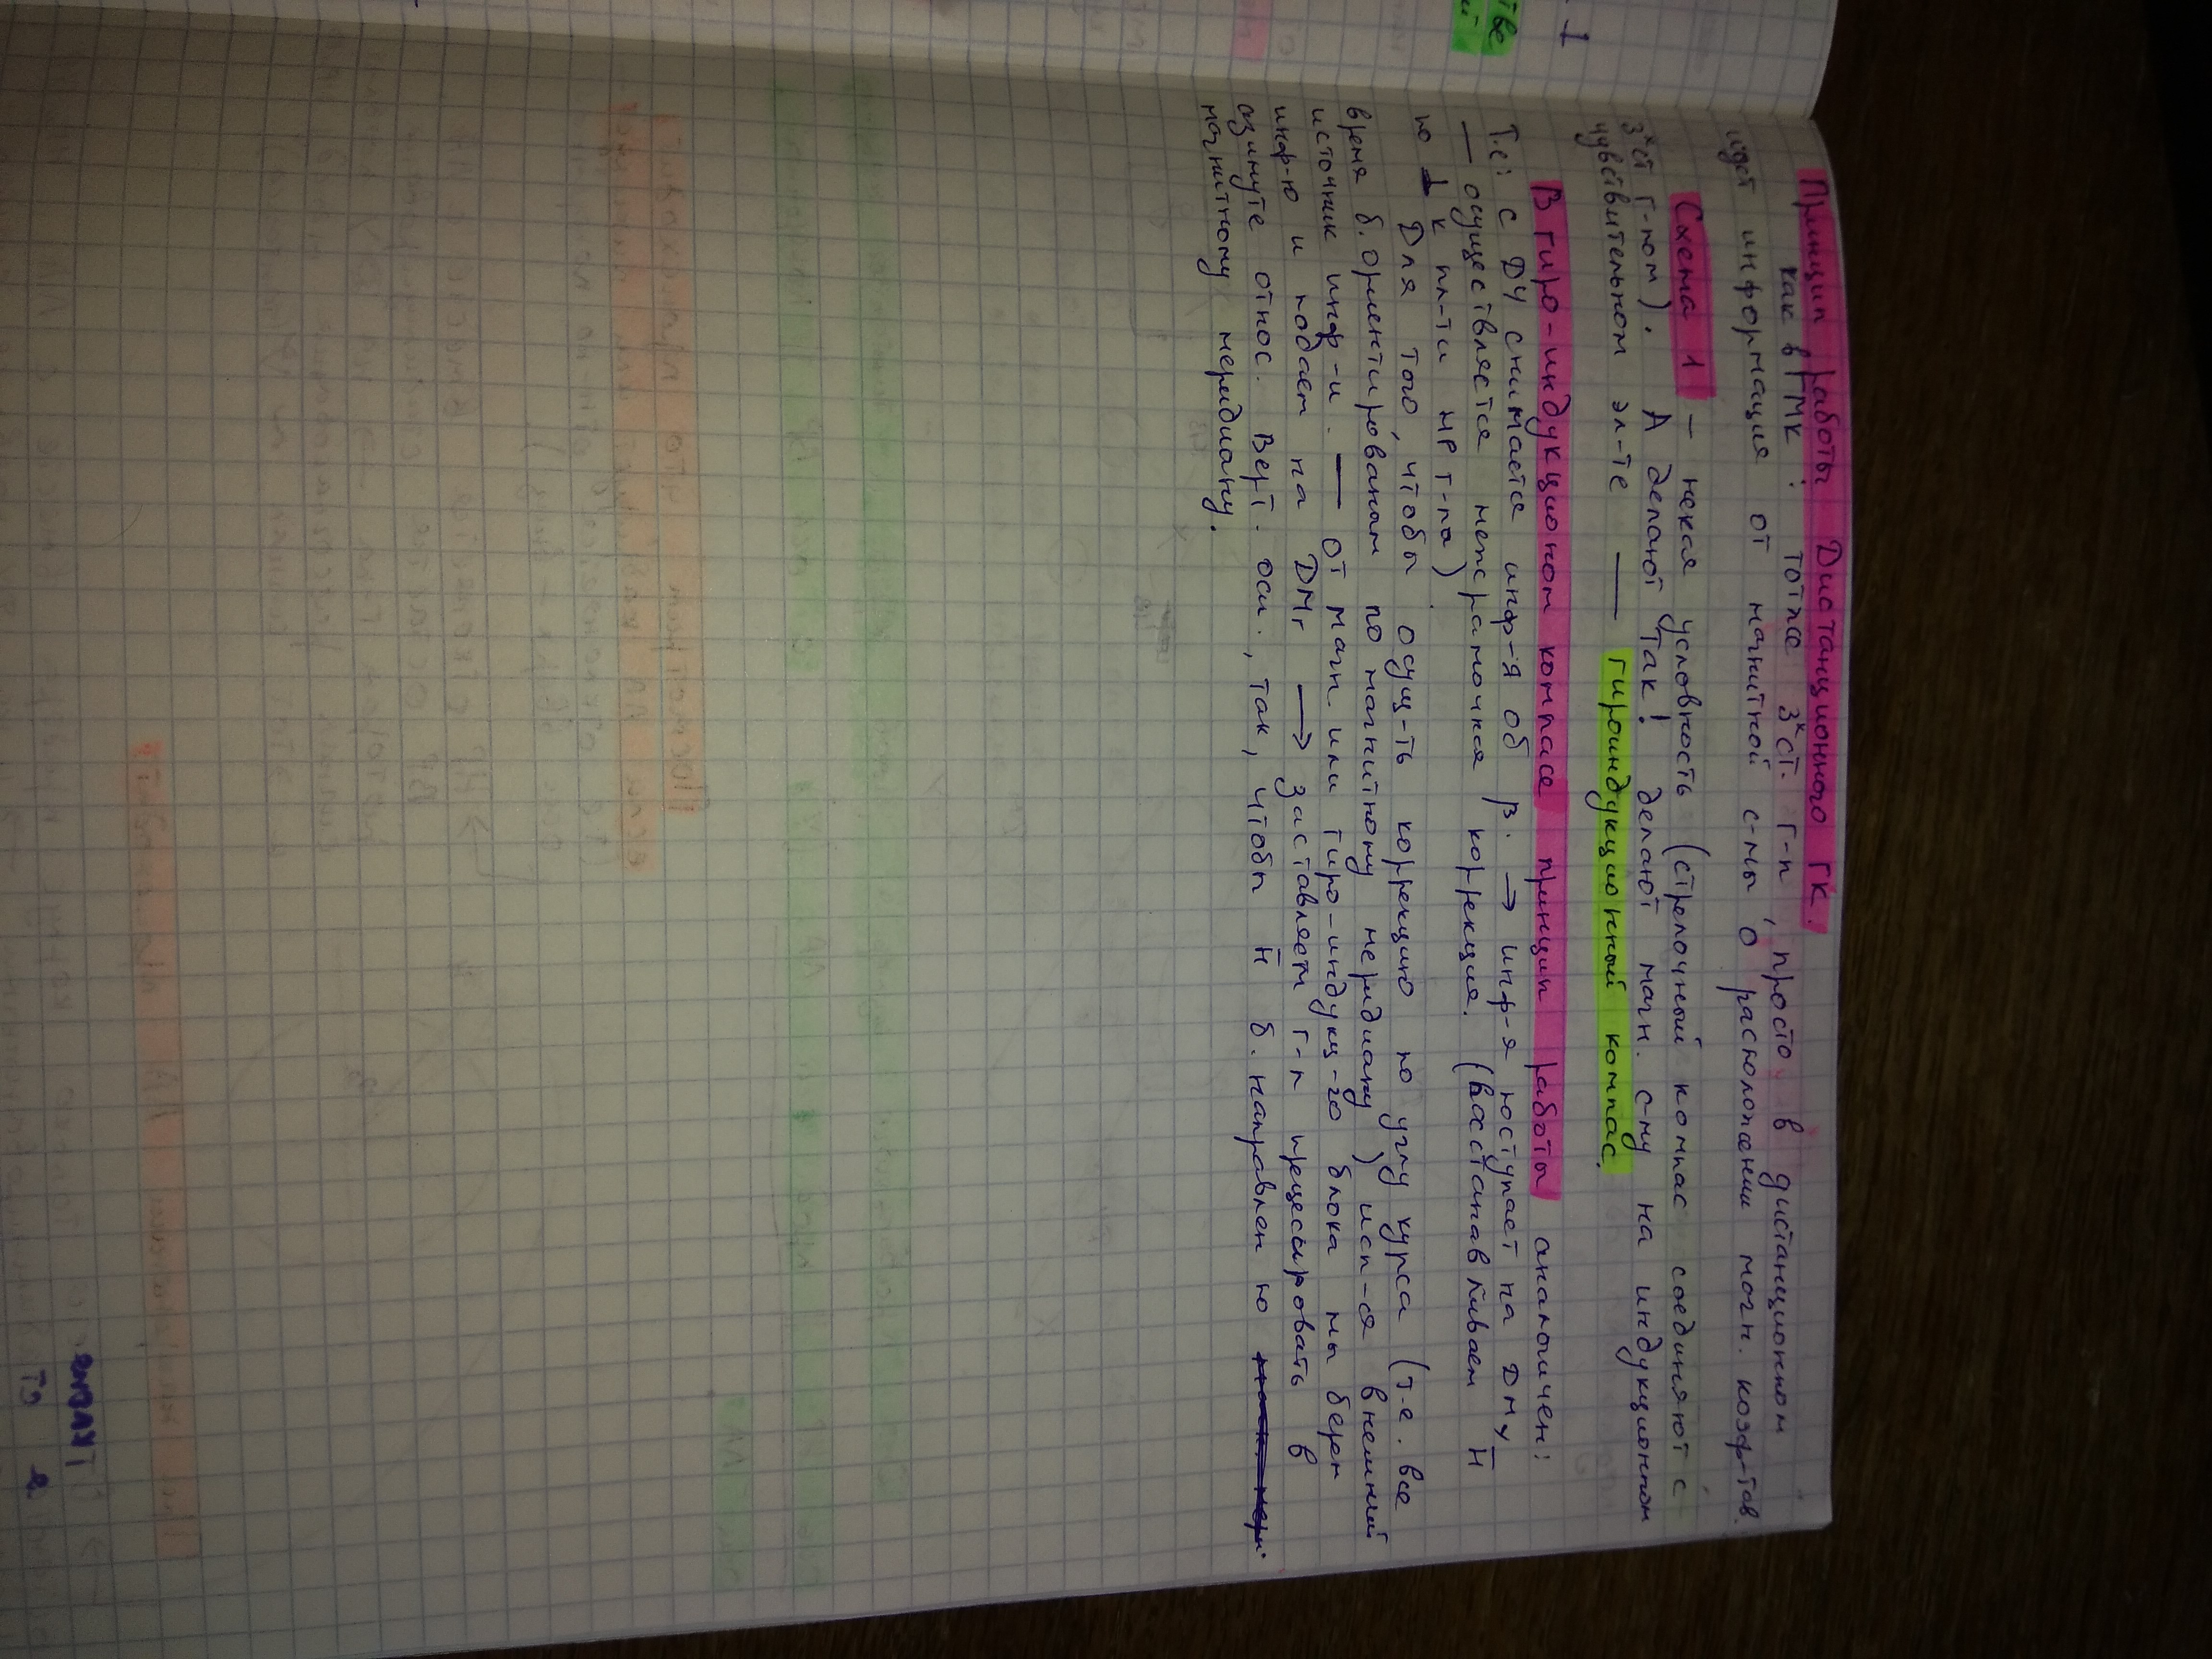 Принцип работы Дистанционного ГК.
как в ГМК: тотже 3хст. г-п, просто в дистанционном
идет информация от магнитной с-мы о расположении магн. коэф-тов.
Схема 1 – некая условность (стрелочный компас соединяют с
3хст г-пом). А делают так! делают магн. с-му на индукционном
чувствительном эл-те — гироиндукционный компас.
В гиро-индукционном компасе принцип работы аналогичен:
Т.е: с ДУ снимается инф-я об β. → инф-я поступает на ДМу
— осуществляется межрамочная коррекция. (восстанавливаем H̄
по ⊥ к пл-ти НР г-па)
Для того, чтобы осущ-ть коррекцию по углу курса (т.е. все
время б. ориентированным по магнитному меридиану) исп-ся внешний
источник инф-и. — от магн. или гиро-индукц-го блока мы берем
инф-ю и подаем на ДМг → заставляем г-п прецессировать в
азимуте относ. Верт. оси., так, чтобы H̄ б. направлен по
магнитному меридиану.